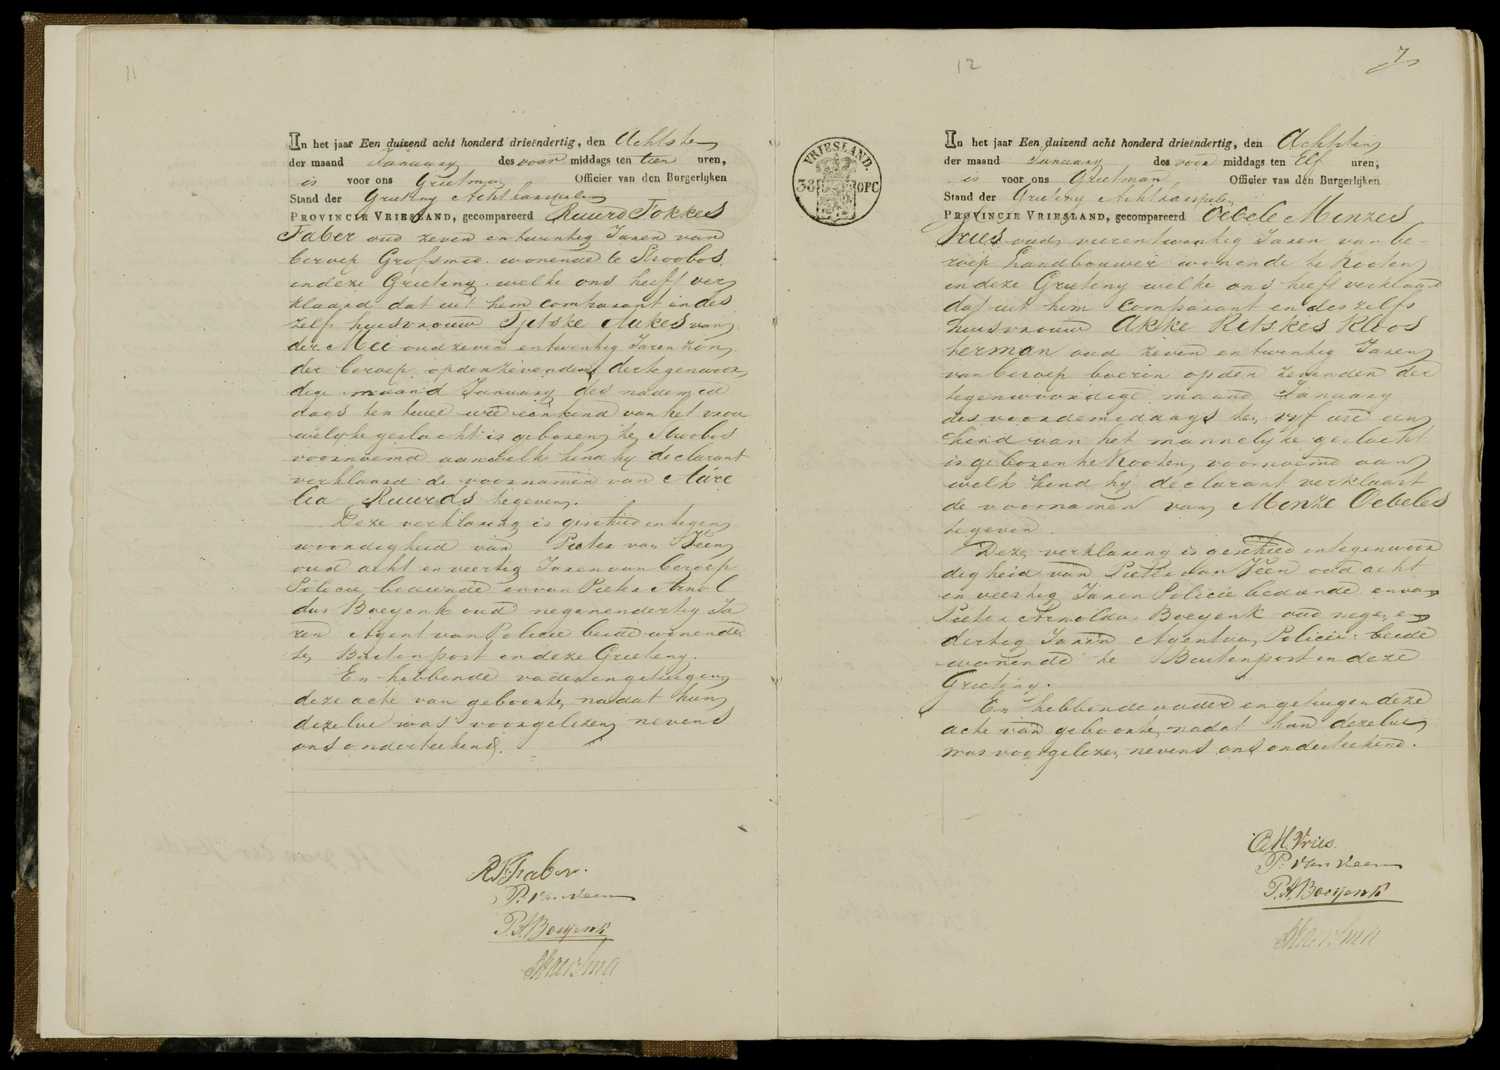 11
In het jaar Een duizend acht honderd drieëndertig, den Achtsten
der maand January des voor middags ten tien uren,
is voor ons Grietman Officier van den Burgerlijken
Stand der Grieteny Achtkarspelen
PROVINCIE VRIESLAND, gecompareerd Ruurd Fokkes
Faber oud zeven en twintig Jaren van
beroep Grofsmid wonende te Stroobos
in deze Grieteny welke ons heeft ver
klaard dat uit hem comparant en des
zelfs huisvrouw Tjitske Aukes van
der Mei oud zeven en twintig Jaren zon
der beroep op den zevenden der tegenwoor
dige maand January des nademid
dags ten twee ure een kind van het vrou
welyke geslacht is geboren te Stroobos
voornoemd aan welk kind hy declarant
verklaard de voornamen van
Ruurds tegeven.
Deze verklaring is geschied in tegen
woordigheid van Pieter van Veen
oud acht en veertig Jaren van beroep
Policie beampte en van Pieter Arnol
dus Boeyenk oud negenendertig Ja
ren Agent van Policie beide wonende
te Buitenpost in deze Grieteny.
En hebbende vader en getuigen
deze acte van geboorte, nadat hun
dezelve was voorgelezen, nevens
ons onderteekend.
R F Faber.
P. van Veen
P. A. Boeyenk
12
7
VRIESLAND.
38 OPC
In het jaar Een duizend acht honderd drieëndertig, den Achtsten
der maand January des voor middags ten Elf uren,
is voor ons Grietman Officier van den Burgerlijken
Stand der Grieteny Achtkarspelen
PROVINCIE VRIESLAND, gecompareerd Oebele Minzes
Vries oud vierentwintig Jaren van be-
roep Landbouwer wonende te Kooten
in deze Grieteny welke ons heeft verklaard
dat uit hem Comparant en deszelfs
huisvrouw Akke Ritskes Kloos
terman oud zeven en twintig Jaren
van beroep boerin op den zevenden der
tegenwoordige maand January
des voordemiddags te vyf ure een
kind van het mannelyke geslacht
is geboren te Kooten voornoemd aan
welk kind hy declarant verklaart
de voornamen van Minze Oebeles
tegeven
Deze verklaring is geschied in tegenwoor
digheid van Pieter van Veen oud acht
en veertig Jaren Policie bediende en van
Pieter Arnoldus Boeyenk oud negen en
dertig Jaren Agent van Policie beide
wonende te Buitenpost in deze
Grieteny.
En hebbende vader en getuigen deze
acte van geboorte, nadat hun dezelve
was voorgelezen, nevens ons onderteekend.
O M Vries.
P. van Veen
P. A. Boeyenk